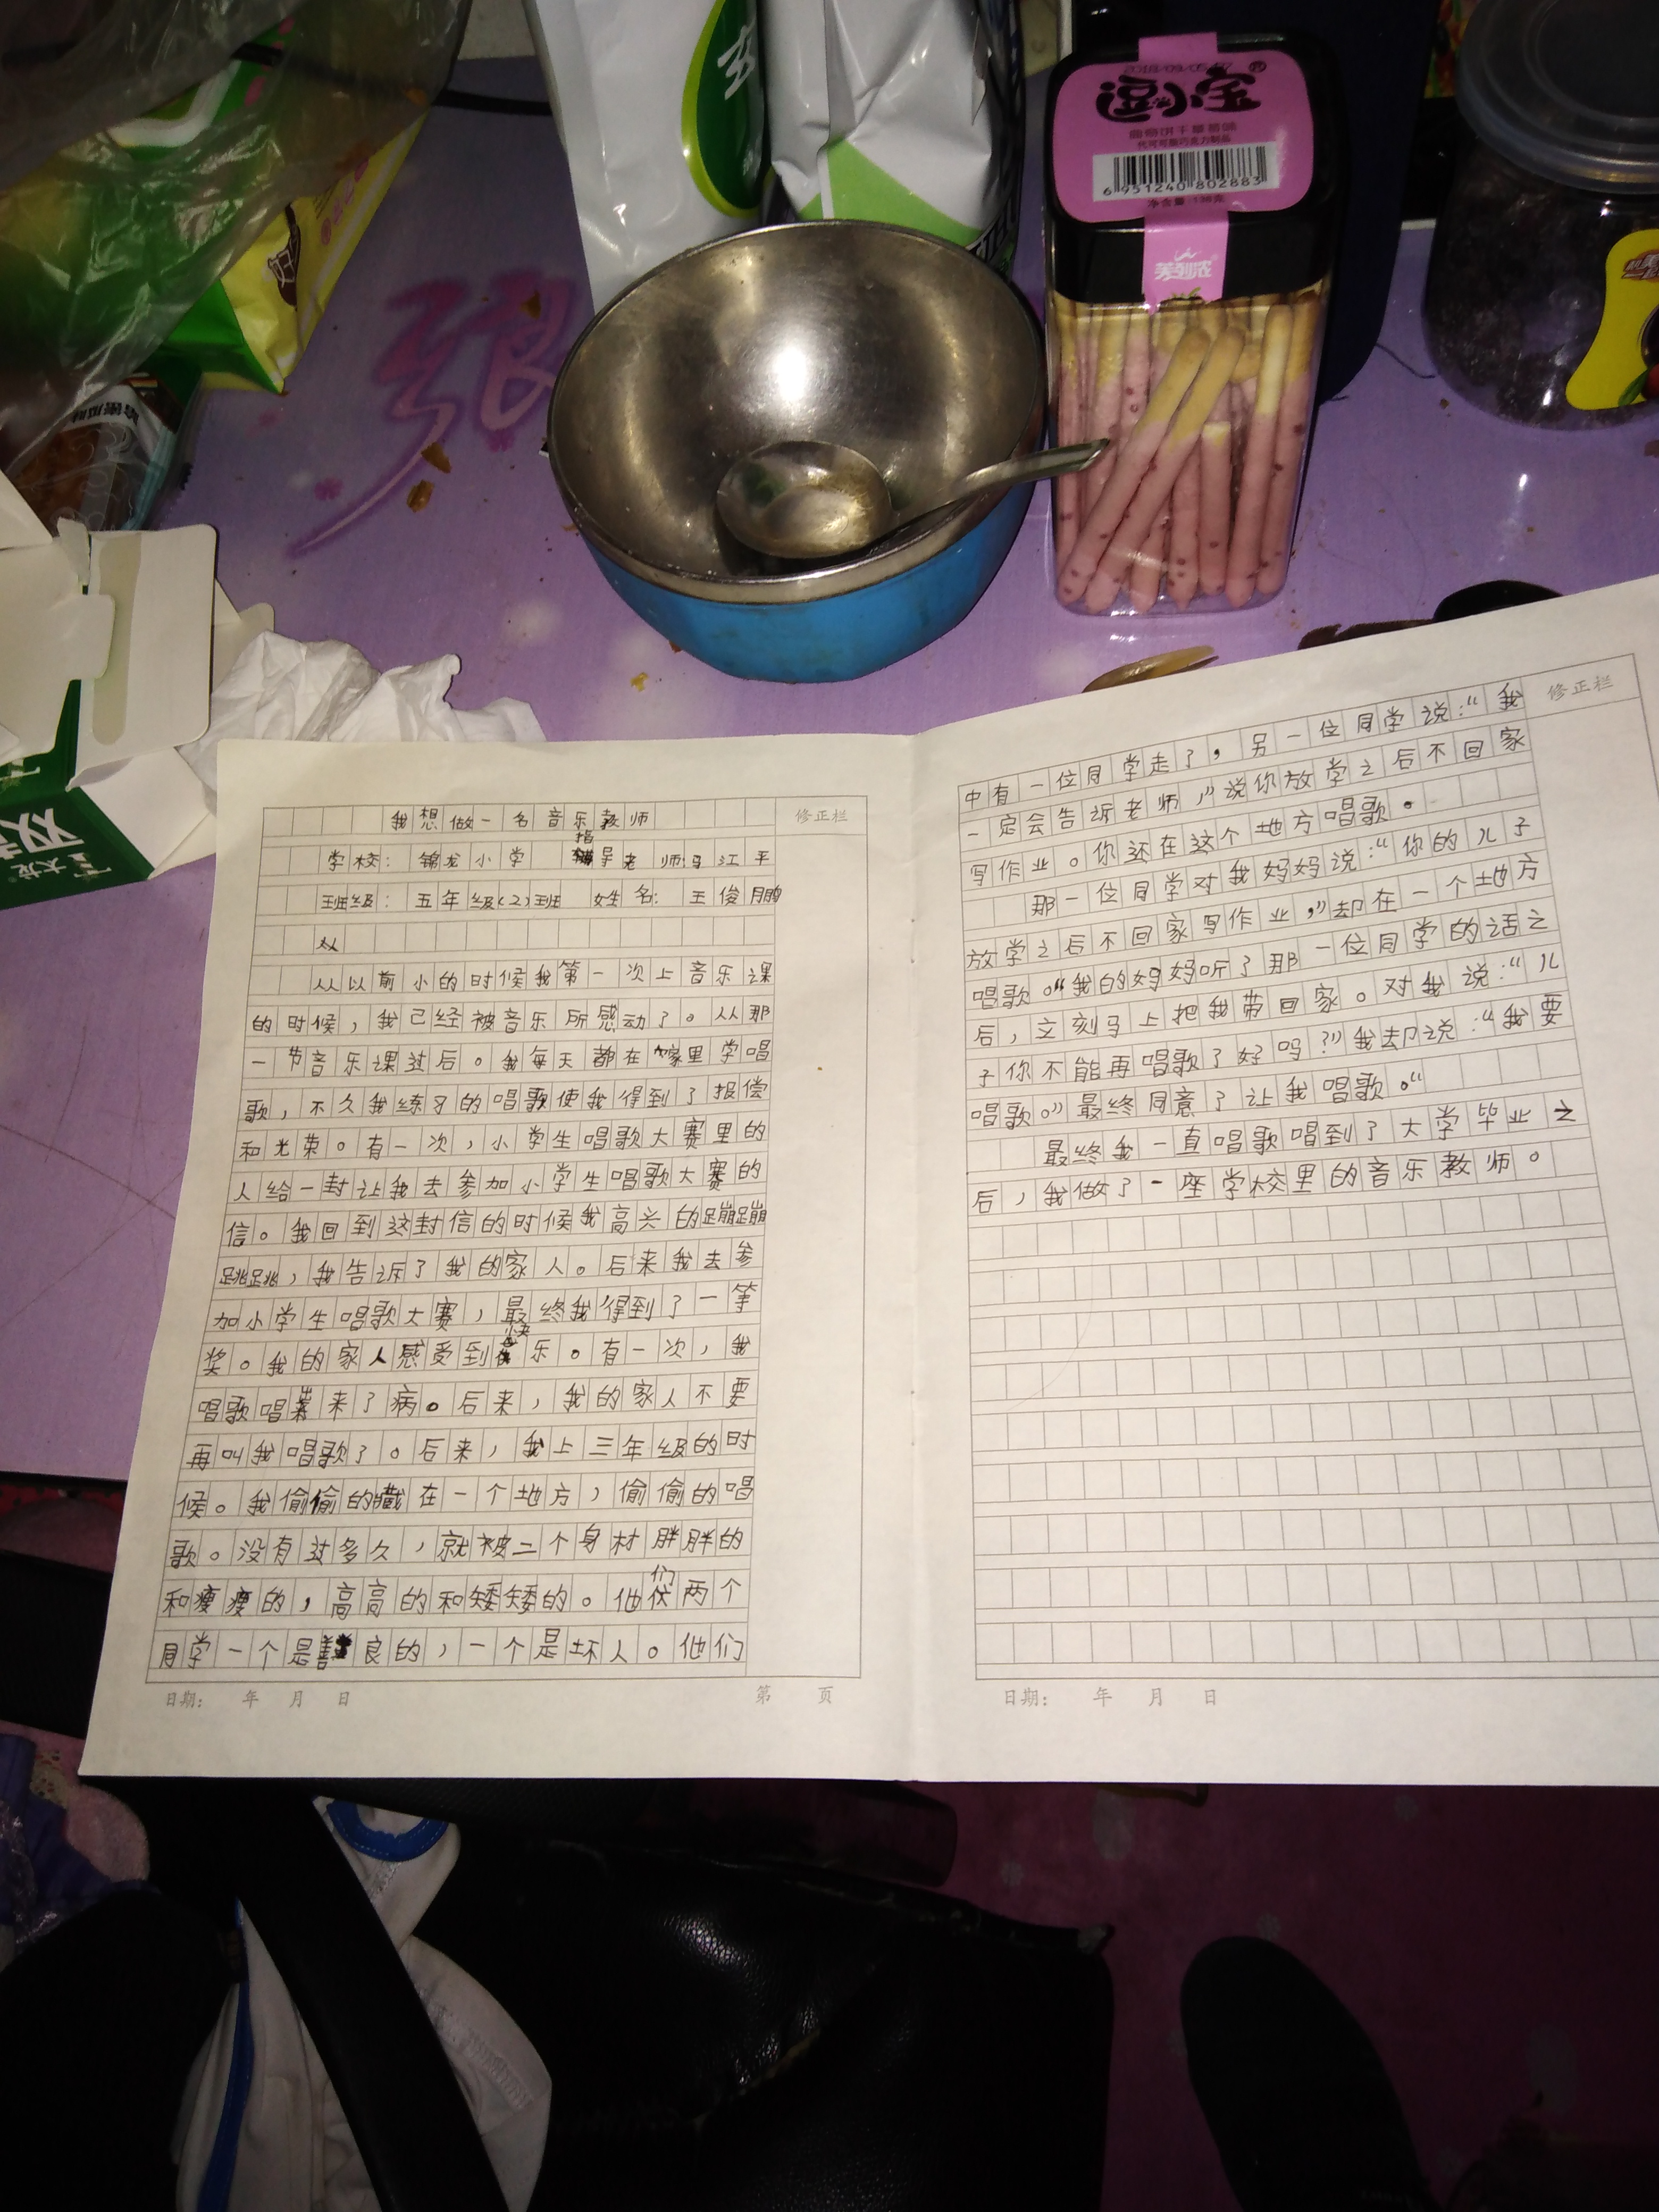 逗小宝
代可可脂巧克力制品
6 951240 802883
净含量:138克
芙列浓
张
双
修正栏
我想做一名音乐教师
学校:锦龙小学 指导老师:马江平
班级:五年级(2)班 姓名:王俊鹏
从以前小的时候我第一次上音乐课
的时候,我已经被音乐所感动了。从那
一节音乐课过后。我每天都在家里学唱
歌,不久我练习的唱歌使我得到了报偿
和光荣。有一次,小学生唱歌大赛里的
人给一封让我去参加小学生唱歌大赛的
信。我回到这封信的时候我高兴的蹦蹦
跳跳,我告诉了我的家人。后来我去参
加小学生唱歌大赛,最终我得到了一等
奖。我的家人感受到快乐。有一次,我
唱歌唱出来了病。后来,我的家人不要
再叫我唱歌了。后来,我上三年级的时
候。我偷偷的藏在一个地方,偷偷的唱
歌。没有过多久,就被二个身材胖胖的
和瘦瘦的,高高的和矮矮的。他们两个
同学一个是善良的,一个是坏人。他们
日期: 年 月 日 第 页
修正栏
中有一位同学走了,另一位同学说:“我
一定会告诉老师,”说你放学之后不回家
写作业。你还在这个地方唱歌。
那一位同学对我妈妈说:“你的儿子
放学之后不回家写作业,”却在一个地方
唱歌。“我的妈妈听了那一位同学的话之
后,立刻马上把我带回家。对我说:“儿
子你不能再唱歌了好吗?”我却说:“我要
唱歌。”最终同意了让我唱歌。“
最终我一直唱歌唱到了大学毕业之
后,我做了一座学校里的音乐教师。
日期: 年 月 日